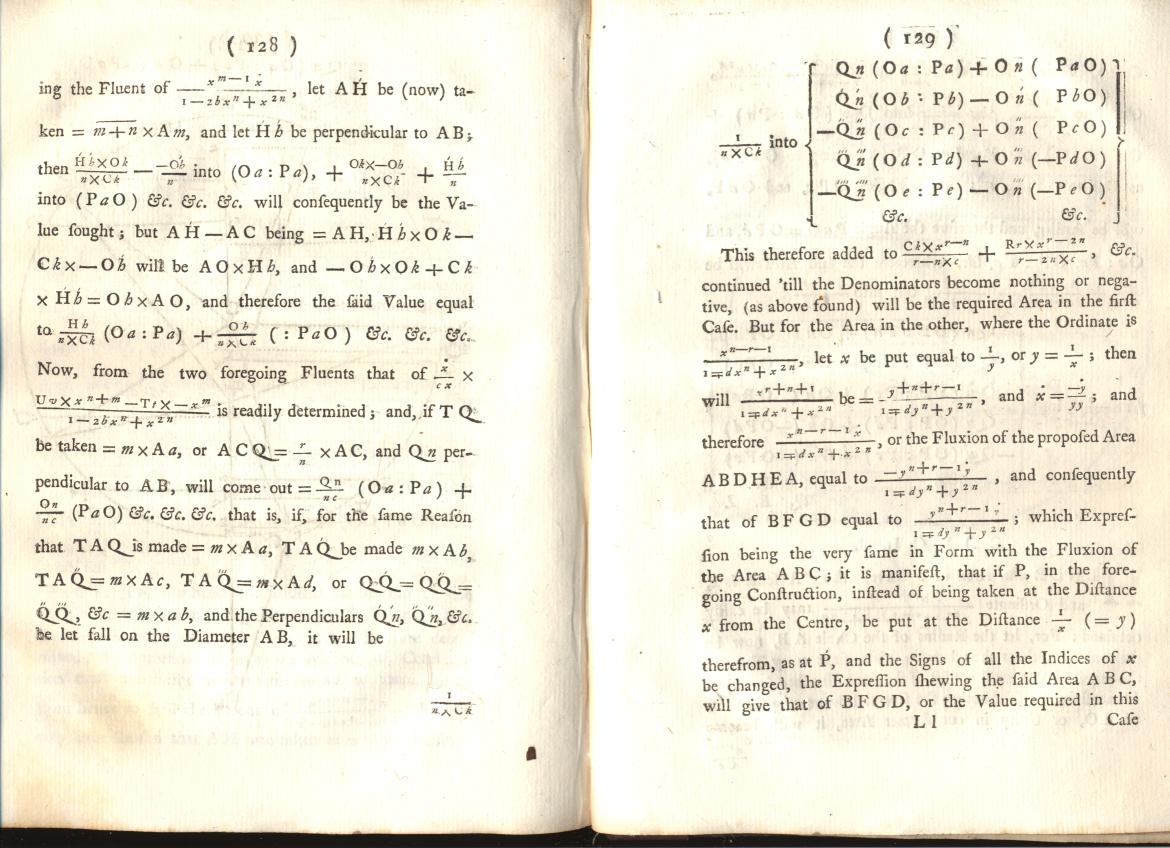 ( 128 )
ing the Fluent of x^{m—1} ẋ / 1—2bx^n+x^{2n}, let A H́ be (now) ta-
ken = m+n × A m, and let H́ b́ be perpendicular to A B;
then H́b́×Ok / n×Ck — —Ob́ / n into (O a : P a), + Ok×—Ob́ / n×Ck + H́b́ / n
into (P a O) &c. &c. &c. will conſequently be the Va-
lue ſought; but A H́ — A C being = A H, H́ b́ × O k —
C k × — O b́ will be A O × H b, and — O b́ × O k + C k
× H́ b́ = O b × A O, and therefore the ſaid Value equal
to H b / n×Ck (O a : P a) + O b / n×Ck ( : P a O ) &c. &c. &c.
Now, from the two foregoing Fluents that of ẋ / c x ×
U v × x^{n+m} — T t × — x^m / 1—2bx^n+x^{2n} is readily determined; and, if T Q
be taken = m × A a, or A C Q = r / n × A C, and Q n per-
pendicular to A B, will come out = Q n / n c (O a : P a) +
O n / n c (P a O) &c. &c. &c. that is, if, for the ſame Reaſon
that T A Q is made = m × A a, T A Q́ be made m × A b,
T A Q̋ = m × A c, T A Q⃛ = m × A d, or Q Q́ = Q́ Q̋ =
Q̋ Q⃛, &c = m × a b, and the Perpendiculars Q́ ń, Q̋ n̋, &c.
be let fall on the Diameter A B, it will be
1 / n×Ck
( 129 )
1 / n×Ck into
Q n (O a : P a) + O n ( P a O)
Q́ ń (O b : P b) — O ń ( P b O)
—Q̋ n̋ (O c : P c) + O n̋ ( P c O)
Q⃛ n⃛ (O d : P d) + O n⃛ (—P d O)
—Q⁗ n⁗ (O e : P e) — O n⁗ (—P e O)
&c. &c.
This therefore added to C k × x^{r—n} / r—n×c + R r × x^{r—2n} / r—2n×c, &c.
continued 'till the Denominators become nothing or nega-
tive, (as above found) will be the required Area in the firſt
Caſe. But for the Area in the other, where the Ordinate is
x^{n—r—1} / 1∓dx^n+x^{2n}, let x be put equal to 1/y, or y = 1/x; then
will x^{r+n+1} / 1∓dx^n+x^{2n} be = y^{+n+r—1} / 1∓dy^n+y^{2n}, and ẋ = —ẏ / yy; and
therefore x^{n—r—1} ẋ / 1∓dx^n+x^{2n}, or the Fluxion of the propoſed Area
A B D H E A, equal to —y^{n+r—1} ẏ / 1∓dy^n+y^{2n}, and conſequently
that of B F G D equal to y^{n+r—1} ẏ / 1∓dy^n+y^{2n}; which Expreſ-
ſion being the very ſame in Form with the Fluxion of
the Area A B C; it is manifeſt, that if P, in the fore-
going Conſtruction, inſtead of being taken at the Diſtance
x from the Centre, be put at the Diſtance 1/x (= y)
therefrom, as at Ṕ, and the Signs of all the Indices of x
be changed, the Expreſſion ſhewing the ſaid Area A B C,
will give that of B F G D, or the Value required in this
L l Caſe